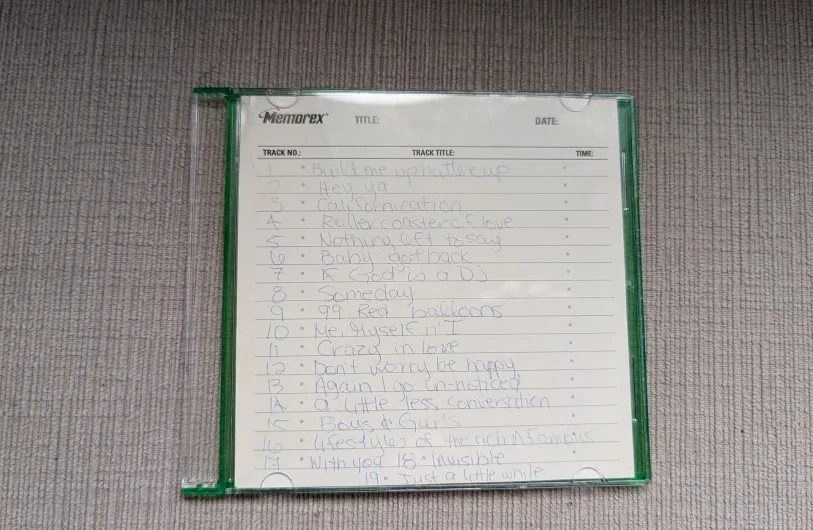 Memorex® TITLE: DATE:
TRACK NO.: TRACK TITLE: TIME:
1 • Build me up buttercup
2 • Hey ya
3 • Californication
4 • Rollercoaster of love
5 • Nothing left to say
6 • Baby got back
7 • If God is a DJ
8 • Someday
9 • 99 Red balloons
10 • Me, Myself n' I
11 • Crazy in love
12 • Don't worry be happy
13 • Again I go un-noticed
14 • a little less conversation
15 • Boys & Gurls
16 • lifestyles of the rich n famous
17 • With you 18 • Invisible
19 • Just a little while